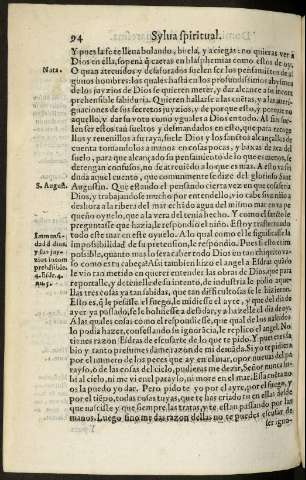 94 Sylua spiritual.
Y pues la fe te lleua bolando, bi ela, y a ciegas: no quieras ver a
Dios en ella, so pena q̃ caeras en blasphemias como estos de oy.
Nota.
O quan atreuidos y desaforados suelen ser los pensamiẽtos de al
gunos hombres: los quales hasta en los profundissimos abysmos
de los juyzios de Dios se quieren meter, y dar alcance a su incom
prehensible sabiduria. Quieren hallarse a las cuẽtas, y a las aueri-
guaciones de sus secretos juyzios, y de porque esto, y porque no
aquello, y dar su voto como yguales a Dios en todo. Al fin sue-
len ser estos tan sueltos y desmandados en esto, que
llos y remedillos a su rayz, suele Dios y los sanctos alcançalles de
cuenta tomandolos a manos en cosas pocas, y baxas de aca del
suelo, para que alcançado su pensamiento de lo que es menos, se
detengan confusos, no se atreuiendo a lo que es mas. A esto va sin
duda aquel cuento, que comunmente se dize del glorioso Sant
S. August.
Augustin. Que estando el pensando cierta vez en que cosa seria
Dios, y trabajandose mucho por entenderlo, vio cabe si vn niño a
desbora a la ribera del mar echãdo agua del mismo mar en vn pe
queño oyuelo, que a la vera del tenia hecho. Y como el sancto le
preguntasse que hazia, le respondio el niño. Estoy trasegando
todo esse mar en este oyuelo. A lo qual como el le significasse la
Immensi-
dad d diui.
y sus juy-
zios incom
prehẽsibles.
4. Esdr. 4.
nu. 5.
impossibilidad de su pretension, le respondio. Pues si esto es im-
possible, quanto mas lo sera a ser todo Dios en tan chiquito va-
so como es tu cabeça? Assi tambien hizo el angel a Esdras quãdo
le vio tan metido en querer entender las obras de Dios que para
reportalle, y detenelle de su intento, de industria le pidio aque-
llas tres cosas ya tan sabidas, que tan dificultosas se le hizieron.
Esto es, q̃ le pesasse el fuego, le midiesse el ayre, y que del dia de
ayer ya passado, se le boluiesse a desandar, y a hazelle el dia de oy.
A las quales cosas como el respondiesse, que qual de los nacidos
lo podia hazer, confessando su ignorãcia, le replico el angel. No
tienes razon Esdras de escusarte de lo que te pido. Y pues eras sa
bio y tanto presumes dame razon de mi demãda. Si yo te pidiera
por el numero de los peces que ay en el mar, o por nueuas del pa
rayso, o de las cosas del cielo, pudieras me dezir, Señor nunca su-
bi al cielo, ni me vi en el parayso, ni more en el mar. Essa cuẽta no
os la puedo yo dar. Pero pido te yo por el ayre, por el fuego, y
por el tiẽpo, todas cosas tuyas, que te has criado tu en ellas desde
que naciste y que siempre las tratas, y te estan passando por las
manos. Luego sino me das razon dellas no te puedes escusar de
ser igno-